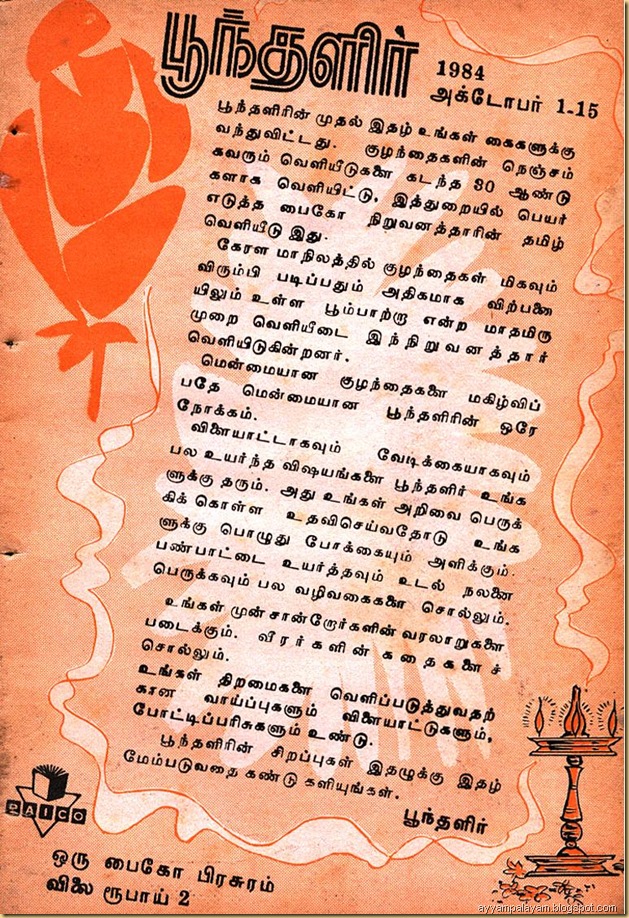 பூந்தளிர்
1984
அக்டோபர் 1-15
பூந்தளிரின் முதல் இதழ் உங்கள் கைகளுக்கு
வந்துவிட்டது. குழந்தைகளின் நெஞ்சம்
கவரும் வெளியீடுகளை கடந்த 30 ஆண்டு
களாக வெளியிட்டு, இத்துறையில் பெயர்
எடுத்த பைகோ நிறுவனத்தாரின் தமிழ்
வெளியீடு இது.
கேரள மாநிலத்தில் குழந்தைகள் மிகவும்
விரும்பி படிப்பதும் அதிகமாக விற்பனை
யிலும் உள்ள பூம்பாற்றா என்ற மாதமிரு
முறை வெளியீடை இந்நிறுவனத்தார்
வெளியிடுகின்றனர்.
மென்மையான குழந்தைகளை மகிழ்விப்
பதே மென்மையான பூந்தளிரின் ஒரே
நோக்கம்.
விளையாட்டாகவும் வேடிக்கையாகவும்
பல உயர்ந்த விஷயங்களை பூந்தளிர் உங்க
ளுக்கு தரும். அது உங்கள் அறிவை பெருக்
கிக் கொள்ள உதவிசெய்வதோடு உங்க
ளுக்கு பொழுது போக்கையும் அளிக்கும்.
பண்பாட்டை உயர்த்தவும் உடல் நலனை
பெருக்கவும் பல வழிவகைகளை சொல்லும்.
உங்கள் முன் சான்றோர்களின் வரலாறுகளை
படைக்கும். வீரர்களின் கதைகளைச்
சொல்லும்.
உங்கள் திறமைகளை வெளிப்படுத்துவதற்
கான வாய்ப்புகளும் விளையாட்டுகளும்,
போட்டிப்பரிசுகளும் உண்டு.
பூந்தளிரின் சிறப்புகள் இதழுக்கு இதழ்
மேம்படுவதை கண்டு களியுங்கள்.
பூந்தளிர்
PAICO
ஒரு பைகோ பிரசுரம்
விலை ரூபாய் 2
ayyampalayam.blogspot.com